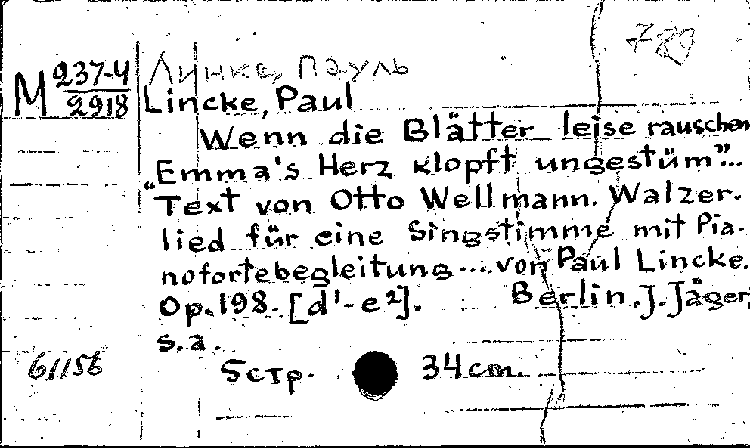 789
М 237-4
2918
Линке, Пауль
Lincke, Paul
Wenn die Blätter leise rauschen
"Emma's Herz klopft ungestüm"...
Text von Otto Wellmann. Walzer-
lied für eine Singstimme mit Pia-
nofortebegleitung... von Paul Lincke.
Op. 198. [d¹-e²]. Berlin. J. Jäger,
s.a.
61156
5 стр. 34 cm.